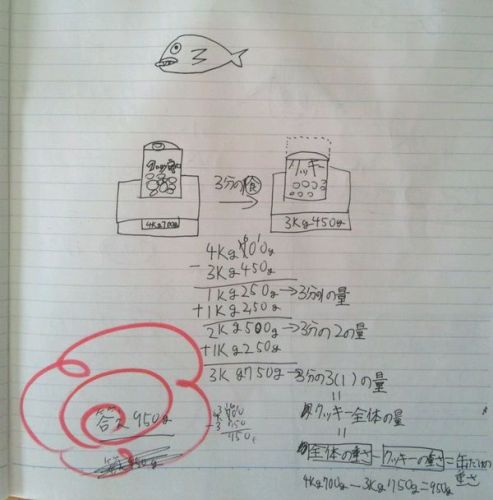 クッキー
クッキー
3分の1食
4Kg700g
3Kg450g
4Kg700g
-3Kg450g
1Kg250g→3分の1の量
+1Kg250g
2Kg500g→3分の2の量
+1Kg250g
3Kg750g→3分の3(1)の量
=
クッキー全体の量
=
全体の重さ-クッキーの重さ=缶だけの重さ
4Kg700g-3Kg750g=950g
答え950g
4.700
-3.750
950g